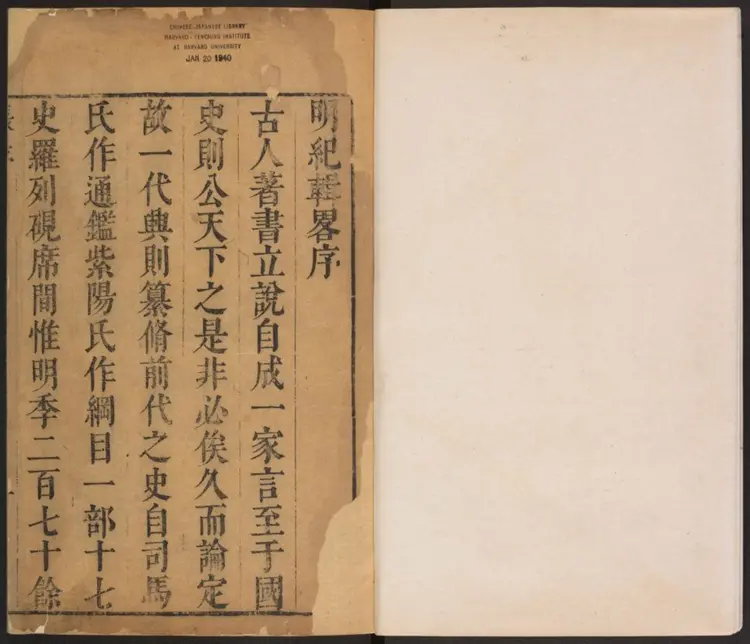 CHINESE-JAPANESE LIBRARY
HARVARD-YENCHING INSTITUTE
AT HARVARD UNIVERSITY
JAN 20 1940
明紀輯畧序
古人著書立說自成一家言至于國
史則公天下之是非必俟久而論定
故一代興則纂脩前代之史自司馬
氏作通鑑紫陽氏作綱目一部十七
史羅列硯席間惟明季二百七十餘